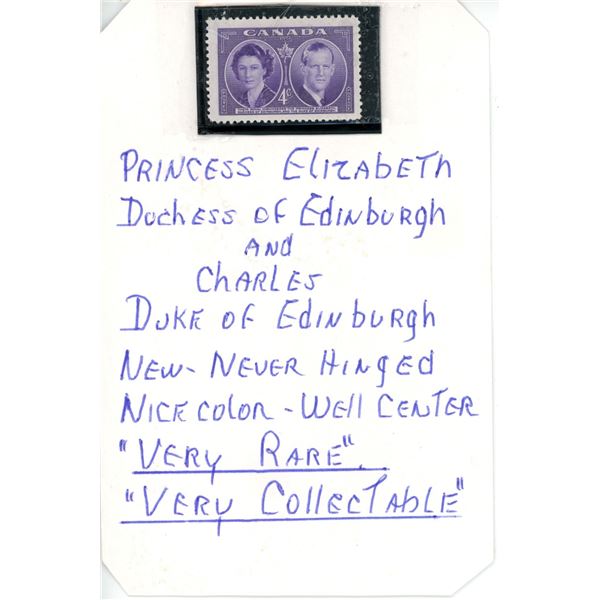 CANADA
4¢
PRINCESS ELIZABETH
DUCHESS OF EDINBURGH
AND
CHARLES
DUKE OF EDINBURGH
NEW- NEVER HINGED
NICE COLOR - WELL CENTER
"VERY RARE".
"VERY COLLECTABLE"